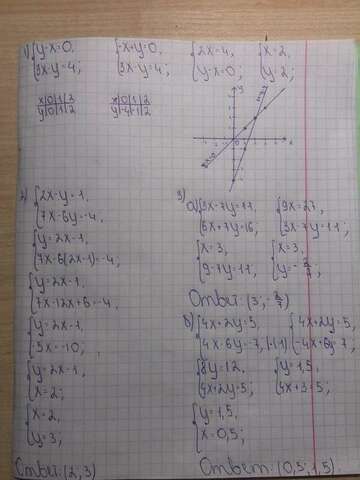 1) {y-x=0,
3x-y=4;
{-x+y=0,
3x-y=4;
{2x=4,
y-x=0;
{x=2,
y=2;
x|0|1|2
y|0|1|2
x|0|1|2
y|-4|-1|2
2) {2x-y=1,
7x-6y=-4;
{y=2x-1,
7x-6(2x-1)=-4;
{y=2x-1,
7x-12x+6=-4;
{y=2x-1,
-5x=-10;
{y=2x-1,
x=2;
{x=2,
y=3;
Ответ: (2,3)
3)
а) {3x-7y=11,
6x+7y=16;
{9x=27,
3x-7y=11;
{x=3,
9-7y=11;
{x=3,
y=-2/7;
Ответ: (3,-2/7)
б) {4x+2y=5,
4x-6y=-7; |·(-1)
{4x+2y=5,
-4x+6y=7;
{8y=12,
4x+2y=5;
{y=1,5,
4x+3=5;
{y=1,5,
x=0,5;
Ответ: (0,5; 1,5)